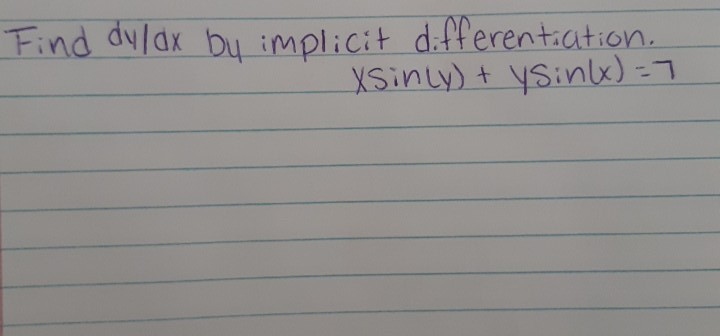 Find dy/dx by implicit differentiation.
xsin(y) + ysin(x) = 7